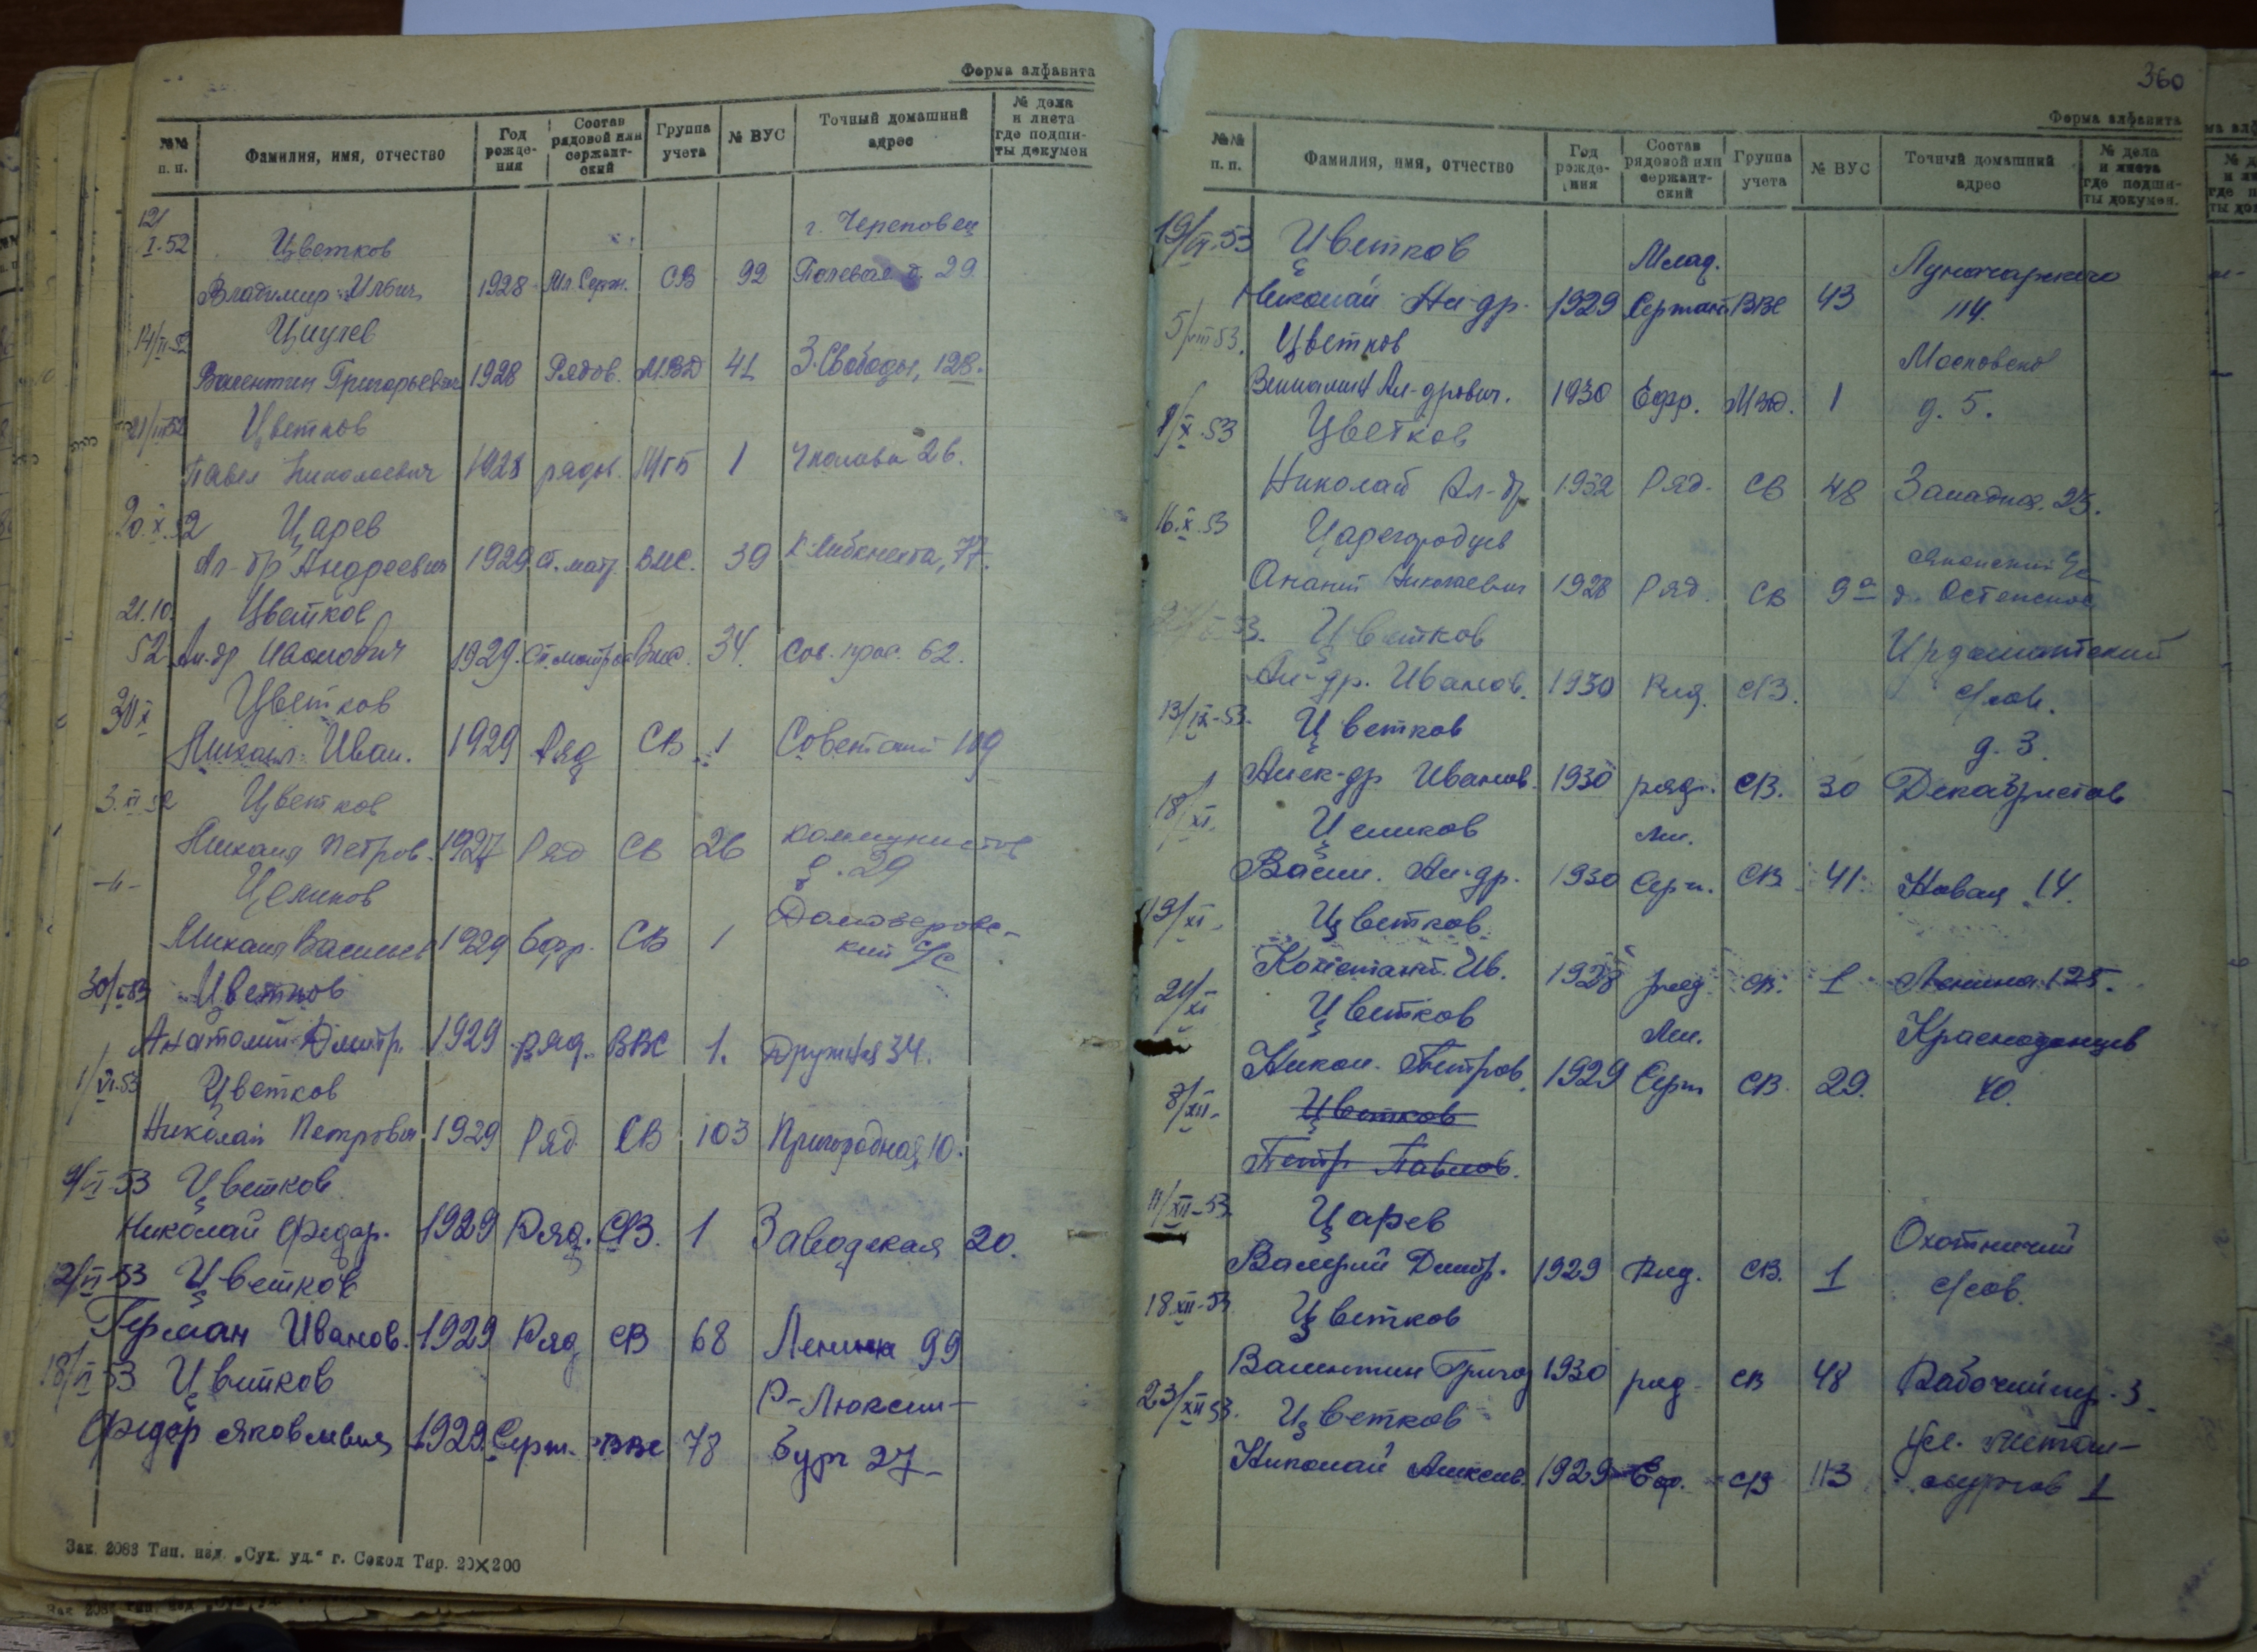 Форма алфавита
№№ п. п.
Фамилия, имя, отчество
Год рожде-ния
Состав рядовой или сержант-ский
Группа учета
№ ВУС
Точный домашний адрес
№ дела и листа где подши-ты докумен
12/I-52 Цветков г. Череповец
Владимир Ильич 1928 Мл. Серж. СВ 92 Полевая д. 29
14/II-52
Валентин Григорьевич 1928 Рядов. МВД 41 З. Свободы, 128.
21/III 52 Цветков
Павел Николаевич 1928 рядов. МГБ 1 Чкалова 26.
20.X.52 Царев
Ал-др Андреевич 1929 ст. матр. ВМС. 39 К. Либкнехта, 77.
21.10. Цветков
52 Ал-др 1929. Ст. матрос Вмс. 34. Сов. прос. 62.
Цветков
Михаил Иван. 1929 Ряд СВ 1 Советский 109
3.XI 52 Цветков
Михаил Петров. 1927 Ряд СВ 26 Коммунистов
д. 29
-"- Целиков
Михаил Васильев 1929 Ефр. СВ 1 Домозеровс-
кий с/с
30/ 53 Цветков
Анатолий Дмитр. 1929 Ряд. ВВС 1. Дружная 34.
1/VI-53 Цветков
Николай Петрович 1929 Ряд СВ 103 Пригородная, 10.
9/VI-53 Цветков
Николай Федор. 1929 Ряд. СВ. 1 Заводская 20.
12/VI-53 Цветков
Герман Иванов. 1929 Ряд СВ 68 Ленина 99
18/VI 53 Цветков Р-Люксем-
Федор Яковлевич 1929 Серж. ВВС 78 бург 27
Зак. 2088 Тип. изд. „Сух. уд.“ г. Сокол Тир. 20×200
360
Форма алфавита
№№ п. п.
Фамилия, имя, отчество
Год рожде-ния
Состав рядовой или сержант-ский
Группа учета
№ ВУС
Точный домашний адрес
№ дела и листа где подши-ты докумен.
19/VI-53 Цветков Млад. Луначарского
Николай Ал-др. 1929 Сержант ВВС 43 114.
5/VIII 53. Цветков Московская
Вениамин Ал-дрович. 1930 Ефр. МВД. 1 д. 5.
1/X.53 Цветков
Николай Ал-др 1932 Ряд. СВ 48 Западная. 23.
16.X.53 Царегородцев
Николаевич 1928 Ряд. СВ 9а д. Остенское
53. Цветков Ирдоматский
Ал-др. Иванов. 1930 Ряд. СВ. с/сов.
13/IX-53. Цветков д. 3.
Алек-др Иванов. 1930 ряд. СВ. 30 Декабристов
18/XI. Целиков Мл.
Васил. Ал-др. 1930 Серж. СВ 41 Новая 14.
19/XI. Цветков
Константин. Ив. 1928 ряд. СВ. 1 Ленина 125.
21/XI Цветков Мл. Краснодонцев
Никол. Петров. 1929 Серж СВ. 29. 40.
8/XII. Цветков
Петр Павлов.
11/XII-53. Царев Охотничий
Валерий Дмитр. 1929 Ряд. СВ. 1 с/сов.
18 XII-53 Цветков
Валентин Григор 1930 ряд. СВ 48 Рабочий пер. 3
23/XII 53. Цветков ул. Метал-
Николай Алексеев. 1929 Еф. СВ 113 лургов 1